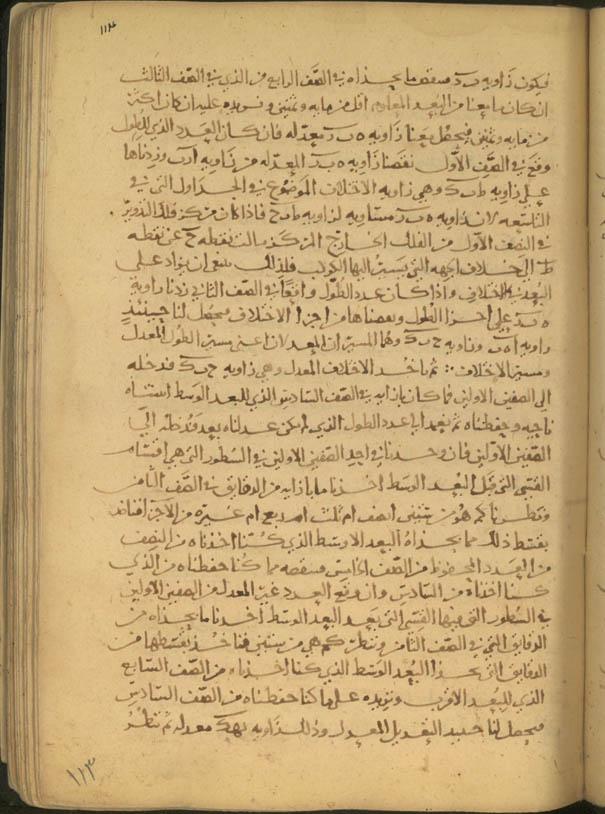 ١١٣
فيكون زاويه ب د منقص ما بحذاه في الصف الرابع من الذي في الصف الثالث
ان كان ما معنا من البعد المعدل اقل من مايه وثمنين ونزيده عليه ان كان اكثر
من مايه وثمنين فيحصل معنا زاويه ه ب د معدله فان كان العدد الذي للطول
وقع في الصف الاول نقصنا زاويه ه ب د المعدله من زاويه ا ب وزدناها
على زاويه ط ب ك وهي زاويه الاختلاف الموضوع في الجداول التي في
التاسعه لان زاويه ه ب د مساويه لزاويه ط ب ح فاذا كان مركز فلك التدوير
في النصف الاول من الفلك الخارج المركز مالت نقطه ح عن نقطه
ط الى خلاف الجهه التي يسير اليها الكوكب فلذلك ينبغي ان يزاد على
البعد في الاختلاف واذا كان عدد الطول واقعا في الصف الثاني زدنا زاويه
ه ب د على اجزا الطول ونقصناها من اجزا الاختلاف فيحصل لنا حينئذ
زاويه ا ه ب وزاويه ح ب ك وهما المسيران المعدلان اعني مسير الطول المعدل
ومسير الاختلاف ثم ناخذ الاختلاف المعدل وهي زاويه ح ب ك فندخله
الى الصفين الاولين فما كان بازايه في الصف السادس الذي للبعد الوسط اثبتناه
ناحيه وحفظناه ثم نعمد الى عدد الطول الذي لم يكن عدلناه بعد فندخله الى
الصفين الاولين فان وجدناه في احد الصفين الاولين في السطور التي هي اقسام
القسي التي قبل البعد الوسط اخذنا ما بازايه من الدقايق في الصف الثامن
ونظرنا كم هو من ستين انصف ام ثلث ام ربع ام غيره من الاجزا فناخذ
بقسط ذلك مما بحذاه البعد الاوسط الذي كنا اخذناه من الصف
من العدد المحفوظ من الصف الخامس وننقصه مما كنا حفظناه من الذي
كنا اخذناه من السادس وان وقع العدد غير المعدل من الصفين الاولين
في السطور التي فيها القسي التي بعد البعد الوسط اخذنا ما بحذاه من
الدقايق التي في الصف الثامن وننظر كم هي من ستين فناخذ بقسطها من
الدقايق التي بحذا البعد الوسط الذي كنا اخذناه من الصف السابع
الذي للبعد الاقرب ونزيده على ما كنا حفظناه من الصف السادس
فيحصل لنا حينيذ التعديل المعدل وذلك زاويه معدله ثم ننظر
١١٣